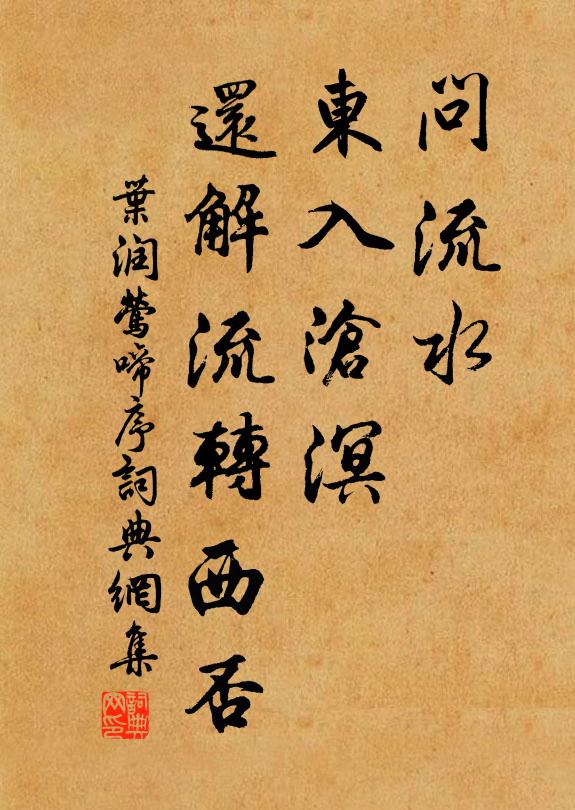 問流水
東入滄溟
還解流轉西否
葉润鶯啼序詞典網集
詞典網印